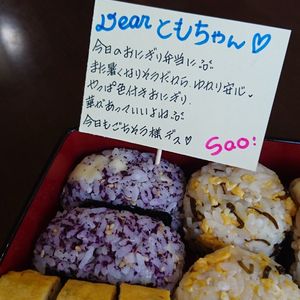 Dear ともちゃん♡
今日のおにぎり弁当に
また暑くなりそうだから、ゆかり安心
やっぱ色付きおにぎり
華があっていいよね
今日もごちそう様デス♡
Sao: